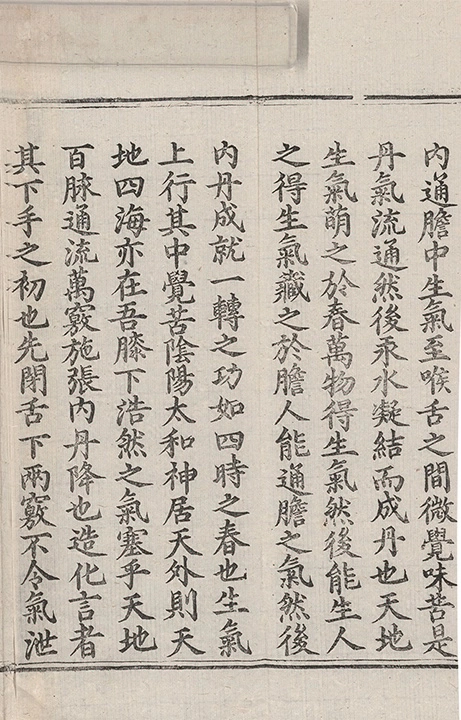 內通膽中生氣至喉舌之間微覺味苦是
丹氣流通然後汞水凝結而成丹也天地
生氣萌之於春萬物得生氣然後能生人
之得生氣藏之於膽人能通膽之氣然後
內丹成就一轉之功如四時之春也生氣
上行其中覺苦陰陽太和神居天外則天
地四海亦在吾膝下浩然之氣塞乎天地
百脉通流萬竅施張內丹降也造化言者
其下手之初也先閉舌下兩竅不令氣泄